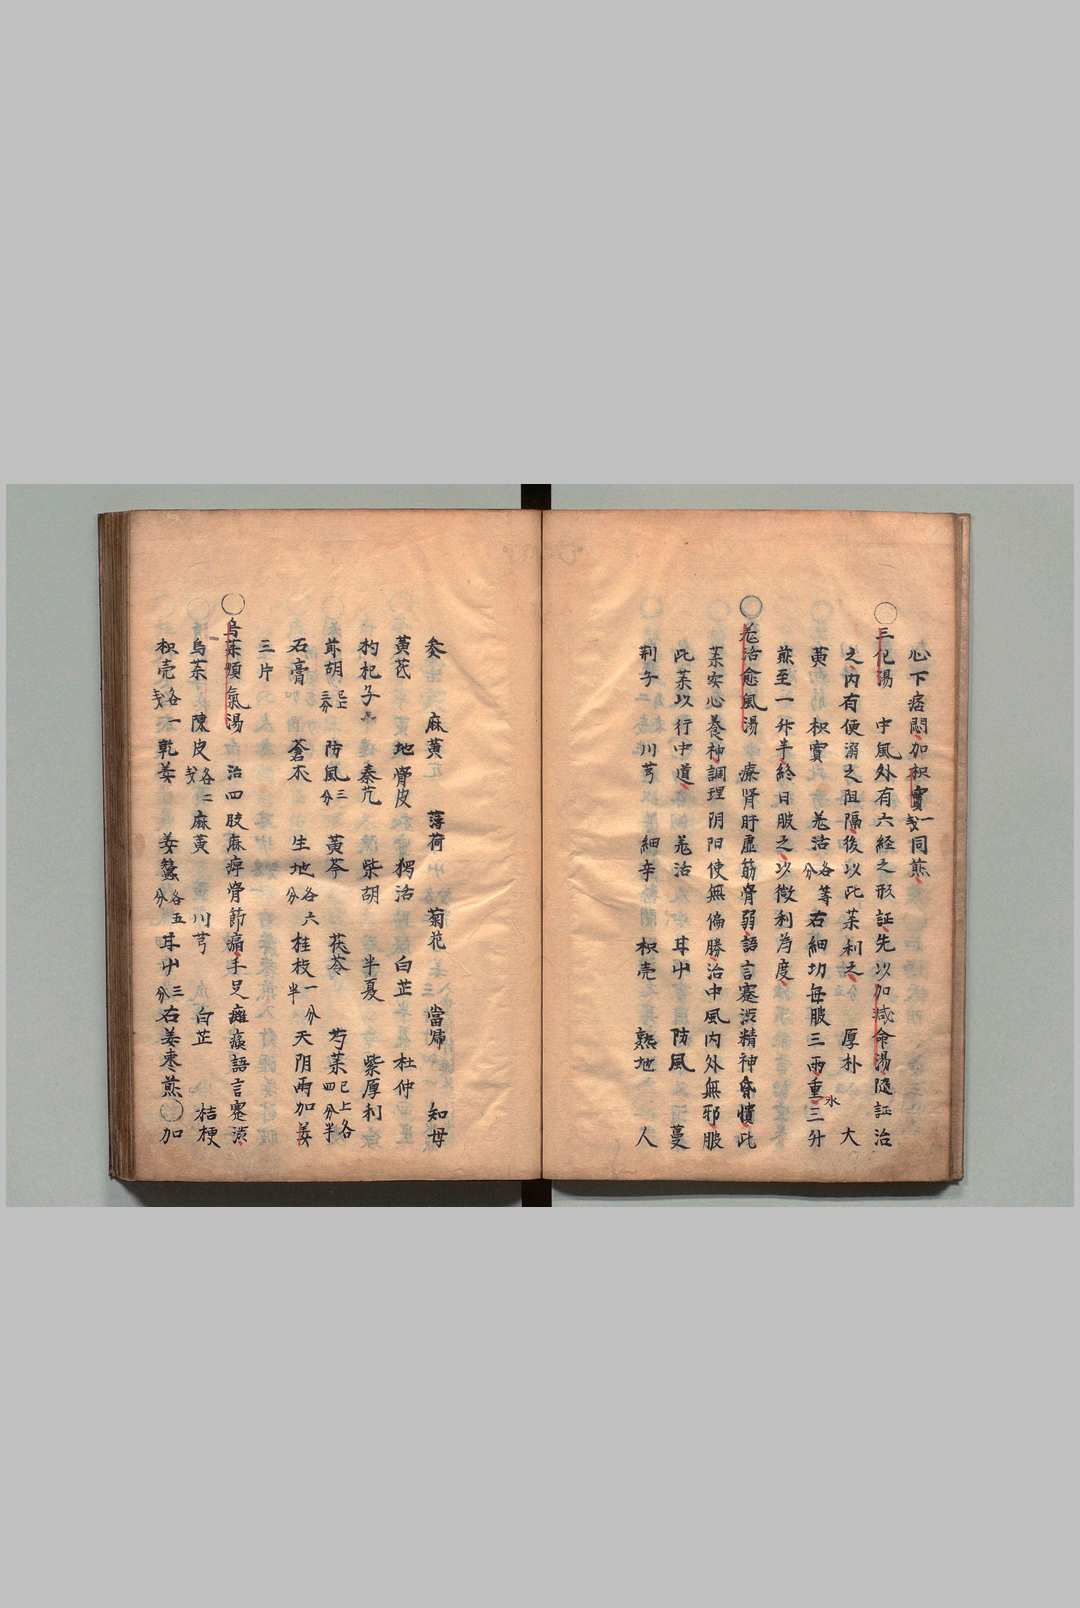 心下痞悶加枳實一戔同煎
○三化湯　中風外有六経之形証先以加减命湯隨証治
之内有便溺之阻隔後以此薬利之　厚朴　大
黄　枳實　羌活各等分　右細切毎服三兩重水三升
煎至一升半終日服之以微利為度
○羌活愈風湯　療肾肝虚筋骨弱語言蹇澁精神昏憒此
薬安心養神調理阴阳使無偏勝治中風内外無邪服
此薬以行中道　羌活　甘中　防風　蔓
荆子　川芎　細辛　枳壳　熟地　人
参　麻黄　薄荷　菊花　當帰　知母
黄芪　地骨皮　獨活　白芷　杜仲
枸杞子　秦艽　柴胡　半夏　紫厚利
前胡已上二分　防風三分　黄芩　茯苓　芍薬已上各四分半
石膏　蒼朮　生地各六分　桂枝一分半　天阴雨加姜
三片
○烏薬順氣湯　治四肢麻痺骨節痛手足瘫痪語言蹇澁
烏薬　陳皮各二戔　麻黄　川芎　白芷　桔梗
枳壳各一戔　乾姜　姜蠶各五分　甘中三分　右姜枣煎○加